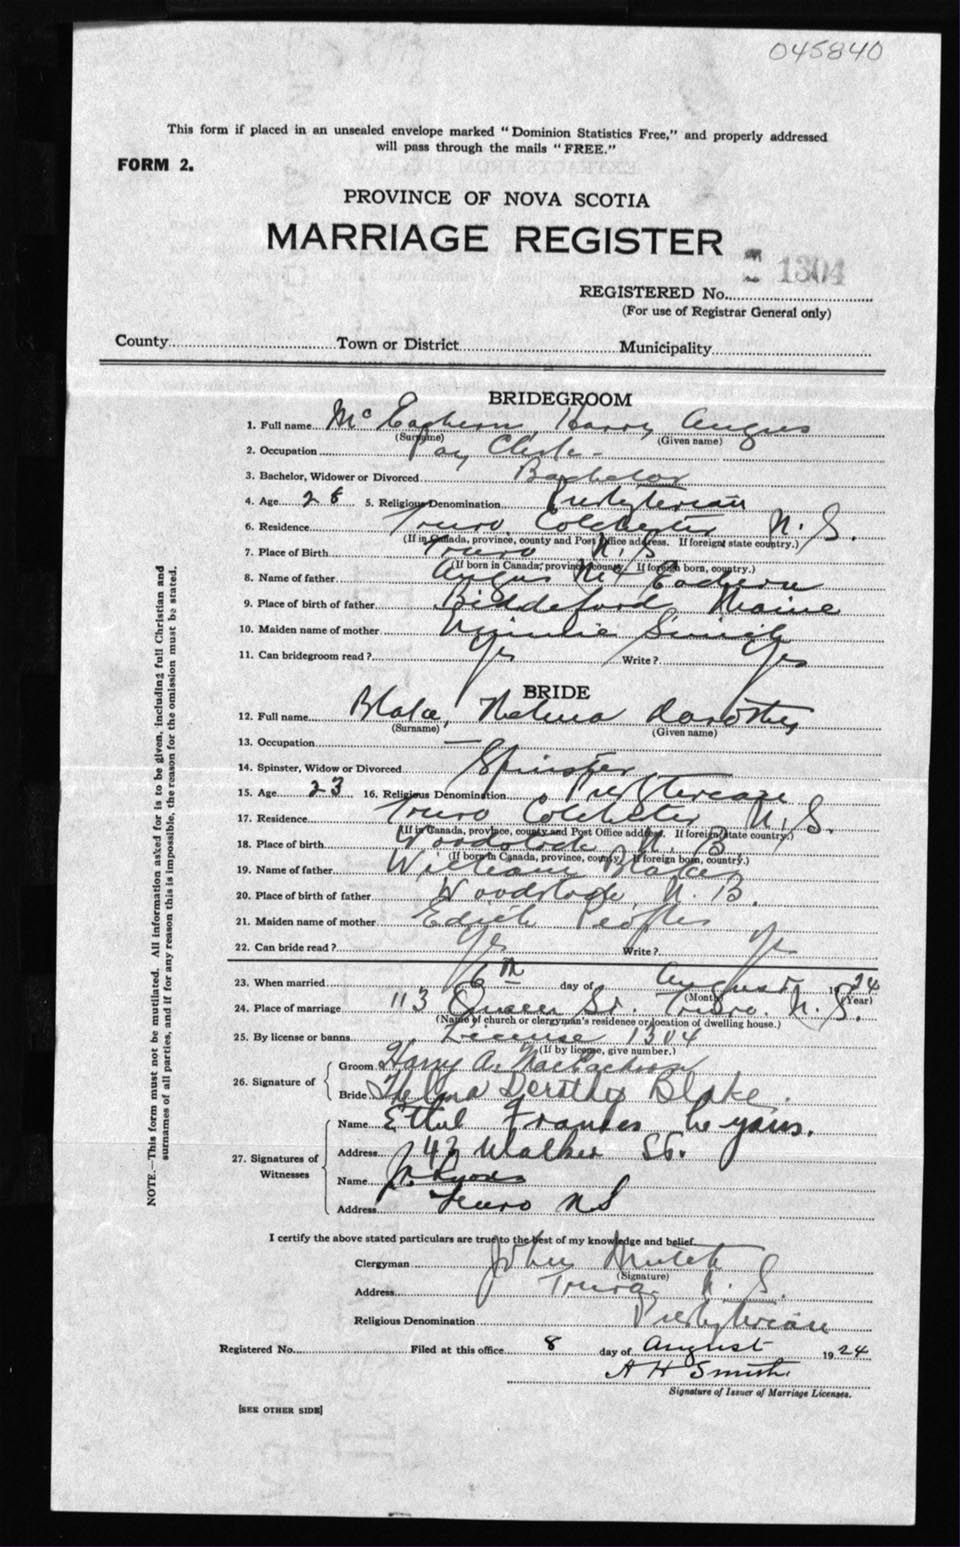 045840
This form if placed in an unsealed envelope marked "Dominion Statistics Free," and properly addressed
will pass through the mails "FREE."
FORM 2.
PROVINCE OF NOVA SCOTIA
MARRIAGE REGISTER
1304
REGISTERED No.
(For use of Registrar General only)
County Town or District Municipality
BRIDEGROOM
1. Full name Mc Eachern, Harry Angus
(Surname) (Given name)
2. Occupation Pay Clerk
3. Bachelor, Widower or Divorced Bachelor
4. Age 5. Religious Denomination Presbyterian
6. Residence Truro Colchester N. S.
(If in Canada, province, county and Post Office address. If foreign state country.)
7. Place of Birth Truro N. S
(If born in Canada, province, county. If foreign born, country.)
8. Name of father Angus Mc Eachern
9. Place of birth of father Biddeford, Maine
10. Maiden name of mother Minnie Smith
11. Can bridegroom read? Yes Write? Yes
BRIDE
12. Full name Blake, Thelma Dorothy
(Surname) (Given name)
13. Occupation —
14. Spinster, Widow or Divorced Spinster
15. Age 23 16. Religious Denomination Presbyterian
17. Residence Truro Colchester N. S.
(If in Canada, province, county and Post Office address. If foreign state country.)
18. Place of birth Woodstock N. B.
(If born in Canada, province, county. If foreign born, country.)
19. Name of father William Blake
20. Place of birth of father Woodstock, N. B.
21. Maiden name of mother Edith Peoples
22. Can bride read? Yes Write? Yes
23. When married 6th day of August 1924
(Month) (Year)
24. Place of marriage 113 Queen St. Truro. N. S.
(Name of church or clergyman's residence or location of dwelling house.)
25. By license or banns License 1304
(If by license, give number.)
26. Signature of
Groom Harry A. MacEachern
Bride Thelma Dorothy Blake.
27. Signatures of Witnesses
Name Ethel Frances
Address 43 Walker St.
Name
Address Truro NS
I certify the above stated particulars are true to the best of my knowledge and belief.
Clergyman John
(Signature)
Address Truro N. S.
Religious Denomination Presbyterian
Registered No. Filed at this office 8 day of August 1924
A H Smith
Signature of Issuer of Marriage Licenses.
[SEE OTHER SIDE]
NOTE.—This form must not be mutilated. All information asked for is to be given, including full Christian and
surnames of all parties, and if for any reason this is impossible, the reason for the omission must be stated.